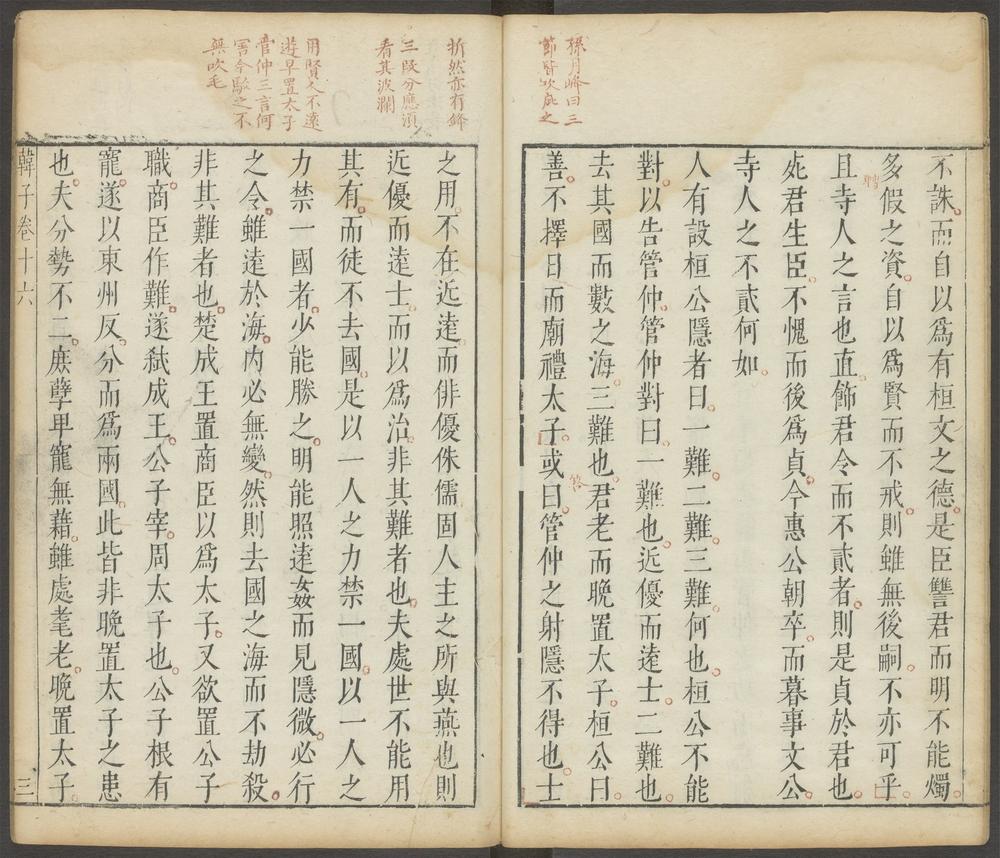 孫月峰曰三
節皆吹疵之
不誅而自以爲有桓文之德是臣讐君而明不能燭
多假之資自以爲賢而不戒則雖無後嗣不亦可乎
且寺人之言也直飾君令而不貳者則是貞於君也
死君生臣不愧而後爲貞今惠公朝卒而暮事文公
寺人之不貳何如
人有設桓公隱者曰一難二難三難何也桓公不能
對以告管仲管仲對曰一難也近優而遠士二難也
去其國而數之海三難也君老而晚置太子桓公曰
善不擇日而廟禮太子或曰管仲之射隱不得也士
析然亦有鋒
三段分應須
看其波瀾
用賢人不遠
遊早置太子
管仲三言何
害今駁之不
無吹毛
之用不在近遠而俳優侏儒固人主之所與燕也則
近優而遠士而以爲治非其難者也夫處世不能用
其有而徒不去國是以一人之力禁一國以一人之
力禁一國者少能勝之明能照遠姦而見隱微必行
之令雖遠於海內必無變然則去國之海而不劫殺
非其難者也楚成王置商臣以爲太子又欲置公子
職商臣作難遂弒成王公子宰周太子也公子根有
寵遂以東州反分而爲兩國此皆非晚置太子之患
也夫分勢不二庶孽卑寵無藉雖處耄老晚置太子
韓子卷十六
三